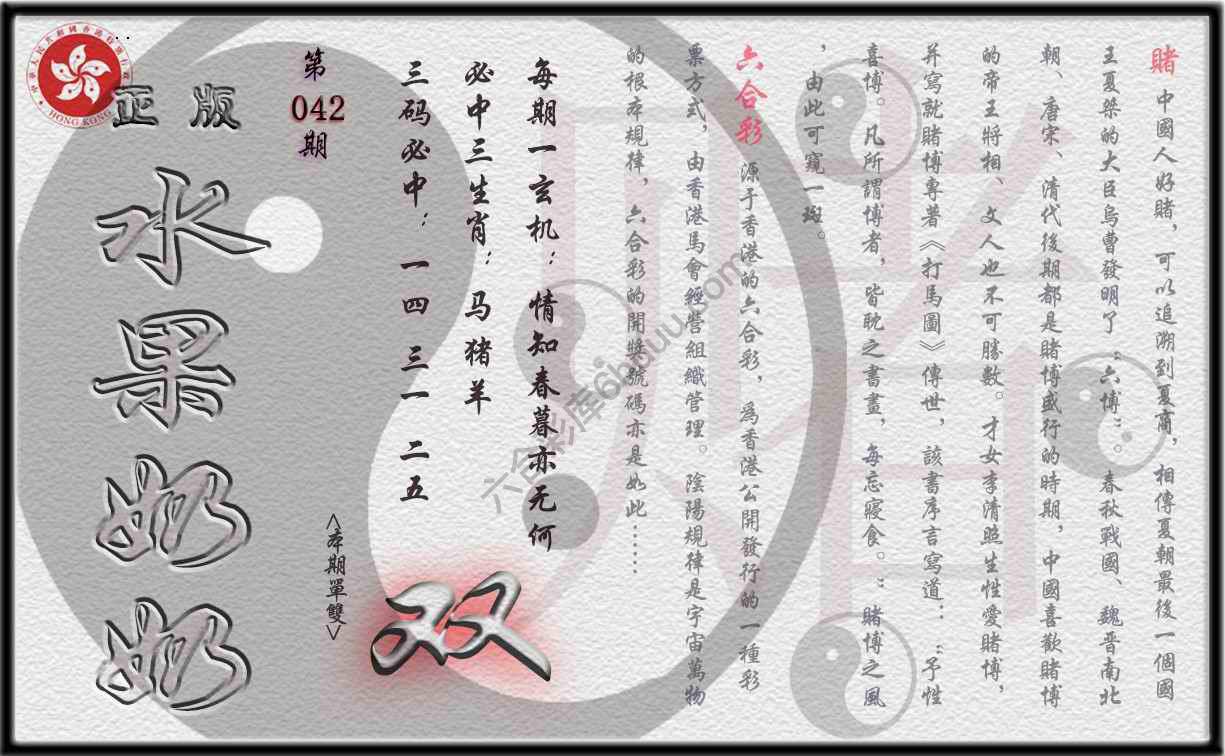 賭 中國人好賭，可以追溯到夏商，相傳夏朝最後一個國
王夏桀的大臣烏曹發明了“六博”。春秋戰國、魏晋南北
朝、唐宋、清代後期都是賭博盛行的時期，中國喜歡賭博
的帝王將相、文人也不可勝數。才女李清照生性愛賭博，
并寫就賭博專著《打馬圖》傳世，該書序言寫道：“予性
喜博。凡所謂博者，皆耽之書畫，每忘寢食。”賭博之風
，由此可窺一斑。
六合彩 源于香港的六合彩，爲香港公開發行的一種彩
票方式，由香港馬會經營組織管理。陰陽規律是宇宙萬物
的根本規律，六合彩的開獎號碼亦是如此……
每期一玄机：情知春暮亦无何
必中三生肖：马猪羊
三码必中：一四 三一 二五
<本期單雙>
双
第
042
期
正版
水果奶奶
中華人民共和國香港特別行政區
HONG KONG
六合彩库6hduu.com